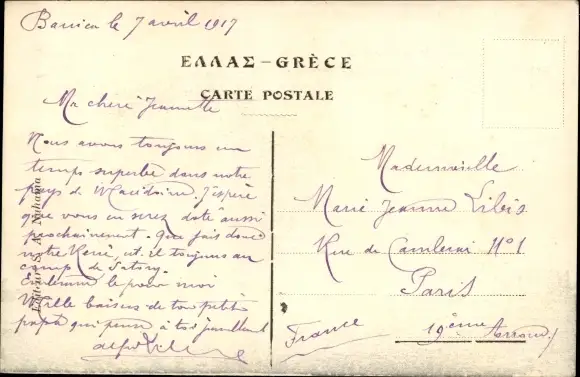 le 7 avril 1917
ΕΛΛΑΣ – GRÈCE
CARTE POSTALE
Ma chère Jeannette
Nous avons toujours un
temps superbe dans notre
pays de Macédoine. J'espère
que vous en serez doté aussi
prochainement. Que fait donc
notre René, est-il toujours au
camp de Satory
le pour moi
Mille baisers de ton petit
papa qui pense à toi
Mademoiselle
Marie Jeanne
Rue de Cambrai N°1
Paris
19ème Arrond.
France